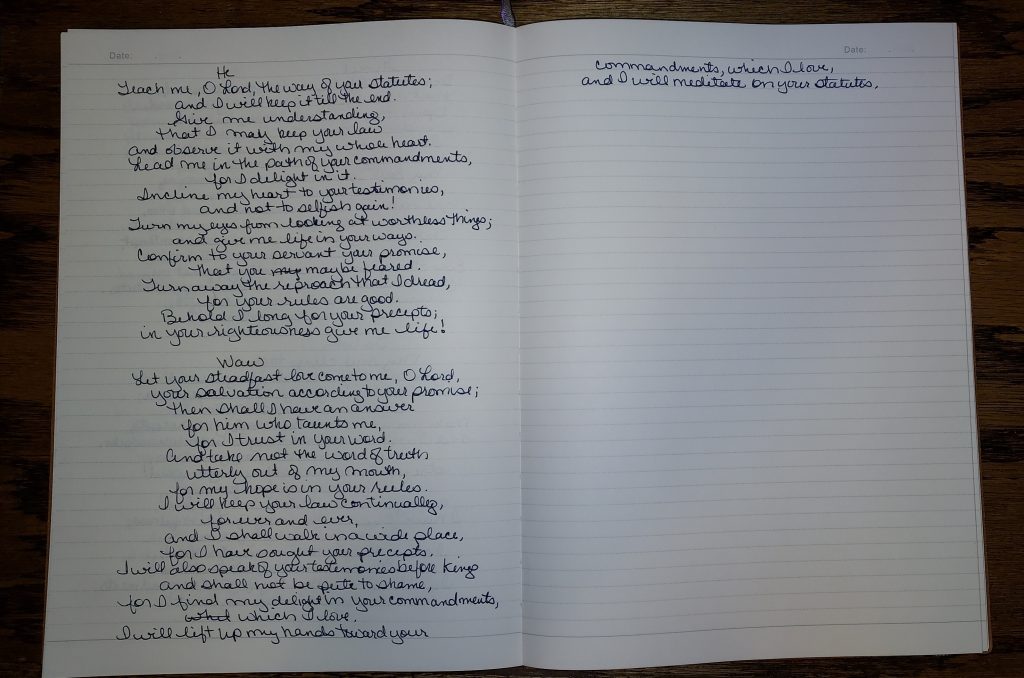 Date:
He
Teach me, O Lord, the way of your statutes;
and I will keep it till the end.
Give me understanding,
that I may keep your law
and observe it with my whole heart.
Lead me in the path of your commandments,
for I delight in it.
Incline my heart to your testimonies,
and not to selfish gain!
Turn my eyes from looking at worthless things;
and give me life in your ways.
Confirm to your servant your promise,
that you may maybe feared.
Turn away the reproach that I dread,
for your rules are good.
Behold I long for your precepts;
in your righteousness give me life!
Waw
Let your steadfast love come to me, O Lord,
your salvation according to your promise;
then shall I have an answer
for him who taunts me,
for I trust in your word.
And take not the word of truth
utterly out of my mouth,
for my hope is in your rules.
I will keep your law continually,
forever and ever,
and I shall walk in a wide place,
for I have sought your precepts.
I will also speak of your testimonies before kings
and shall not be pute to shame,
for I find my delight in your commandments,
which I love.
I will lift up my hands toward your
Date:
commandments, which I love,
and I will meditate on your statutes.